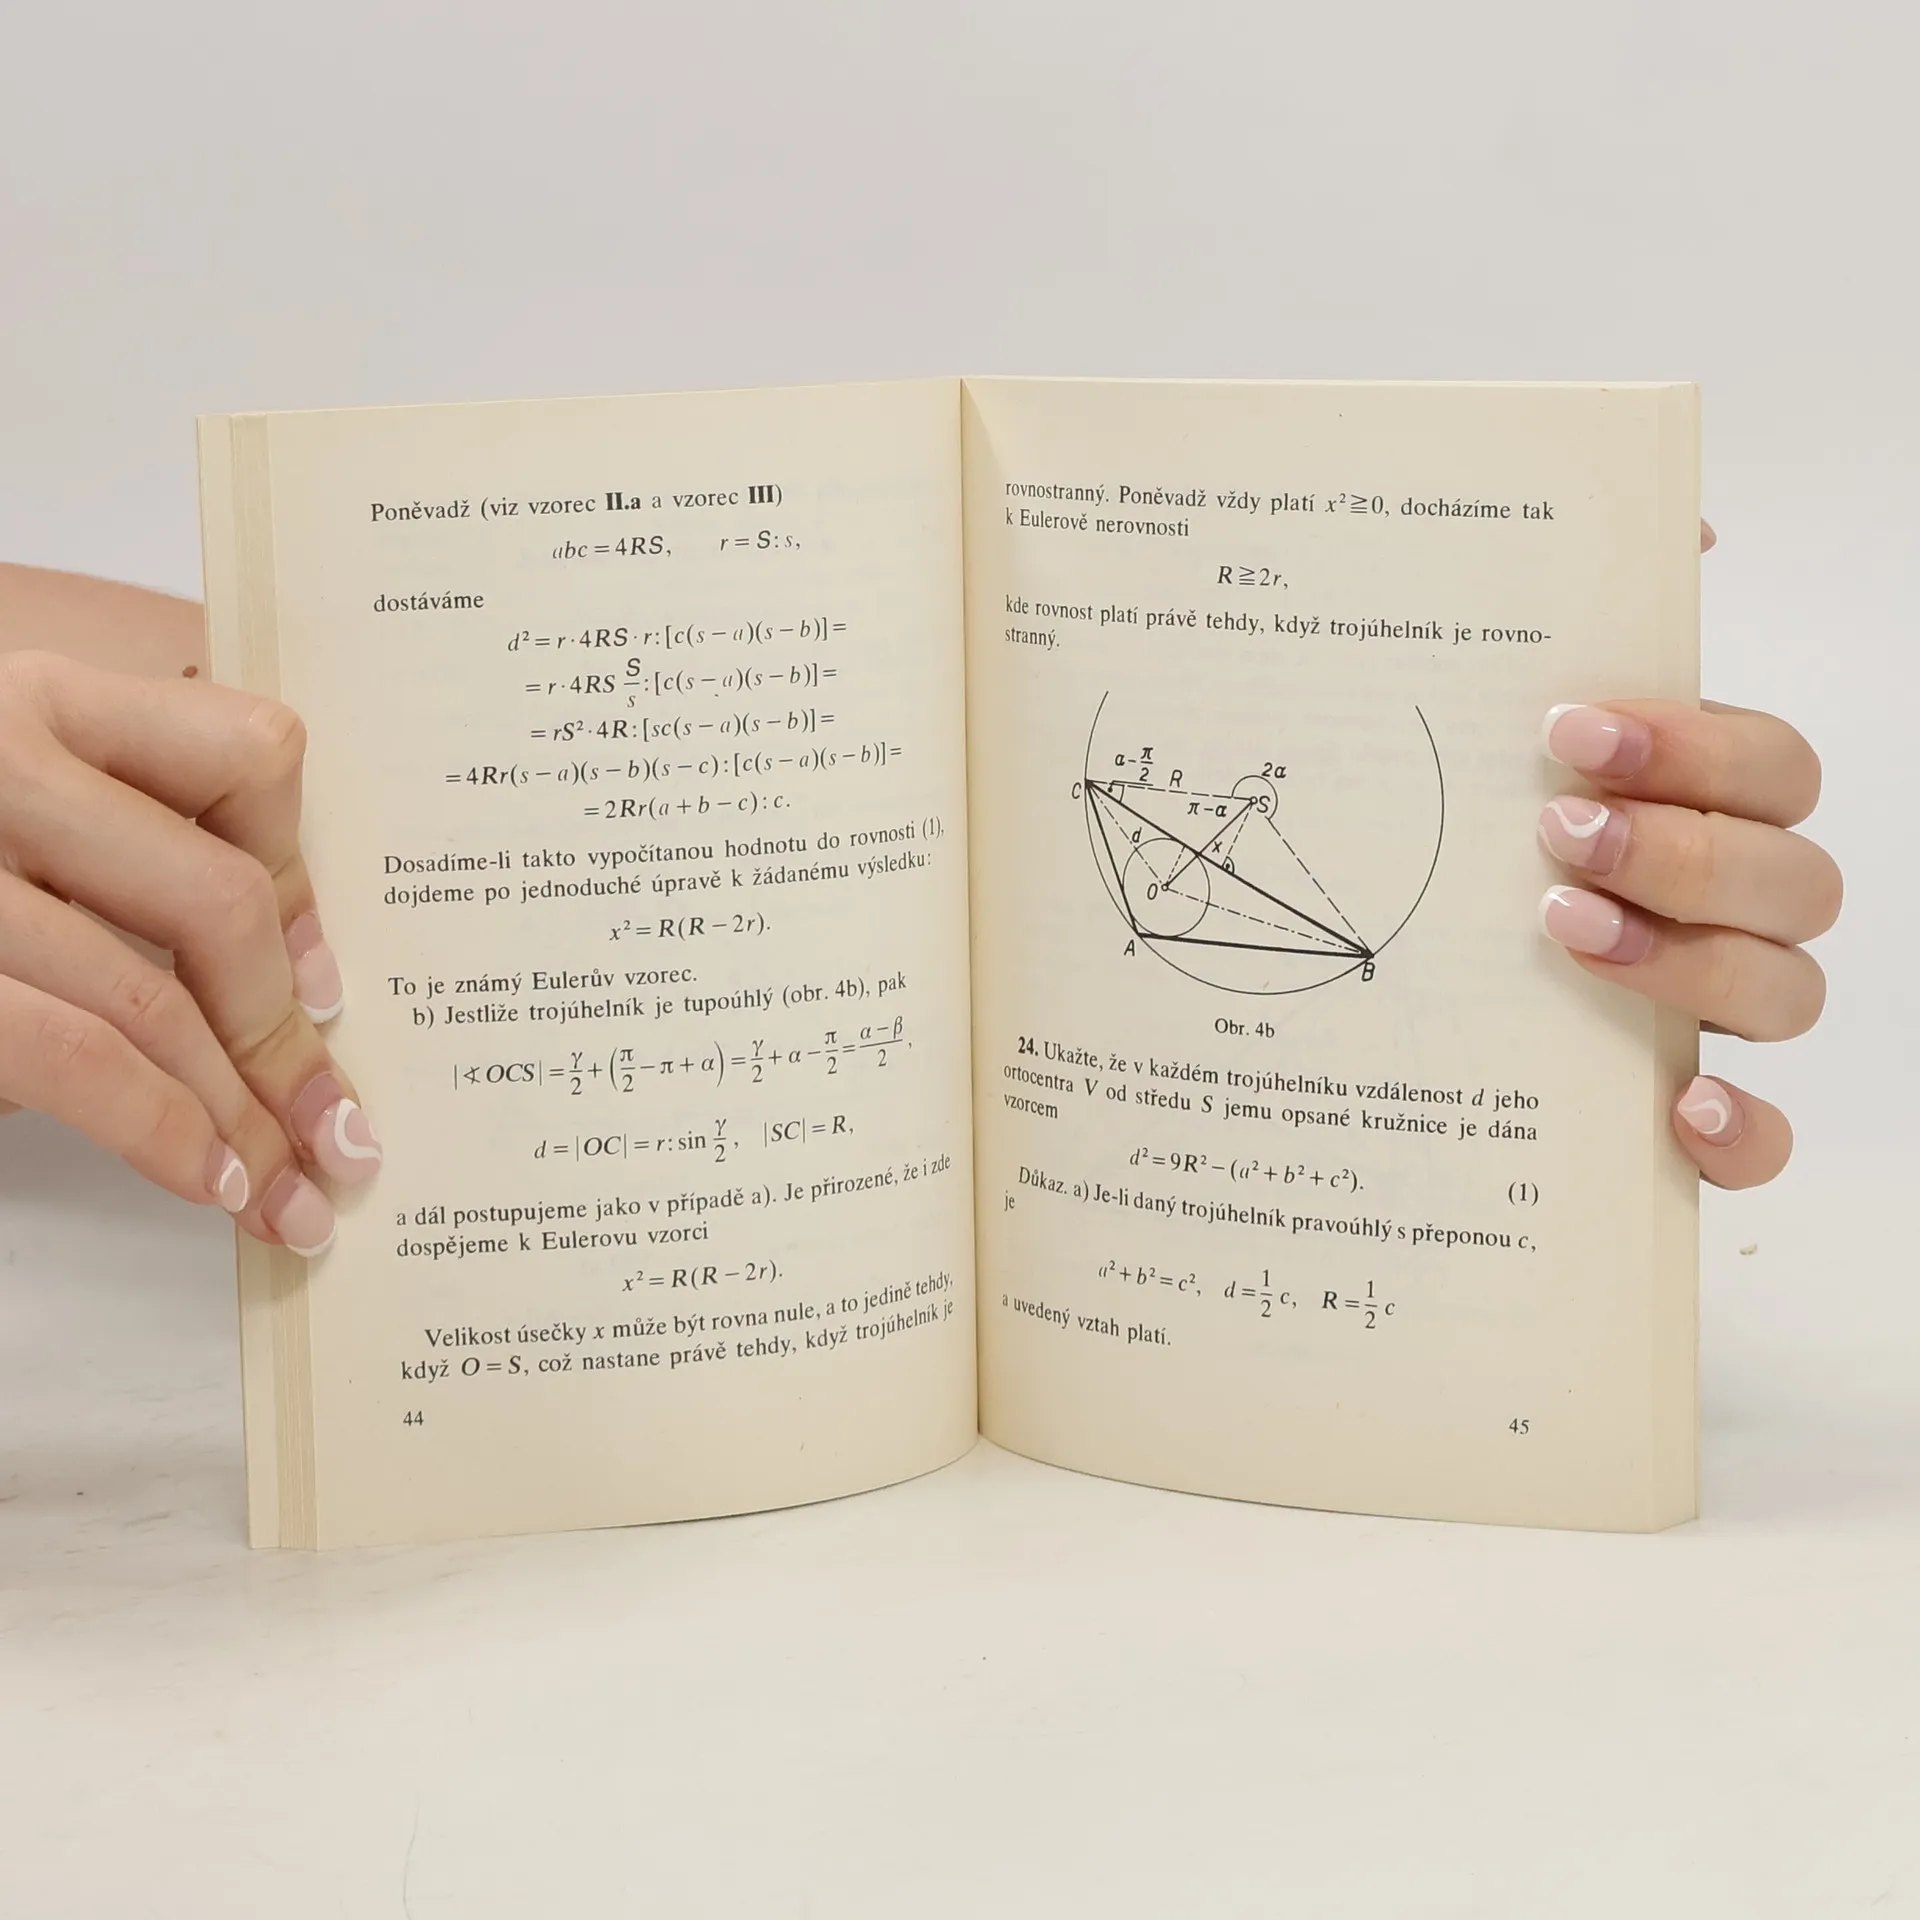 Poněvadž (viz vzorec II.a a vzorec III)
abc = 4RS, r = S:s,
dostáváme
d² = r·4RS·r:[c(s − a)(s − b)] =
= r·4RS S/s:[c(s − a)(s − b)] =
= rS²·4R:[sc(s − a)(s − b)] =
= 4Rr(s − a)(s − b)(s − c):[c(s − a)(s − b)] =
= 2Rr(a + b − c):c.
Dosadíme-li takto vypočítanou hodnotu do rovnosti (1),
dojdeme po jednoduché úpravě k žádanému výsledku:
x² = R(R − 2r).
To je známý Eulerův vzorec.
b) Jestliže trojúhelník je tupoúhlý (obr. 4b), pak
|∢ OCS| = γ/2 + (π/2 − π + α) = γ/2 + α − π/2 = α − β/2,
d = |OC| = r: sin γ/2, |SC| = R,
a dál postupujeme jako v případě a). Je přirozené, že i zde
dospějeme k Eulerovu vzorci
x² = R(R − 2r).
Velikost úsečky x může být rovna nule, a to jedině tehdy,
když O = S, což nastane právě tehdy, když trojúhelník je
44
rovnostranný. Poněvadž vždy platí x² ≧ 0, docházíme tak
k Eulerově nerovnosti
R ≧ 2r,
kde rovnost platí právě tehdy, když trojúhelník je rovno-
stranný.
α − π/2
R
2α
C
π − α
S
d
x
O
A
B
Obr. 4b
24. Ukažte, že v každém trojúhelníku vzdálenost d jeho
ortocentra V od středu S jemu opsané kružnice je dána
vzorcem
d² = 9R² − (a² + b² + c²). (1)
Důkaz. a) Je-li daný trojúhelník pravoúhlý s přeponou c,
je
a² + b² = c², d = 1/2 c, R = 1/2 c
a uvedený vztah platí.
45